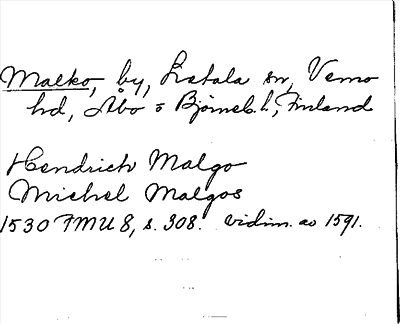 Malko, by, Lietala sn, Vemo
hd, Åbo o Björneb. l., Finland
Hendrich Malgo
Michel Malgos
1530 FMU 8, s. 308. vidim. ao 1591.